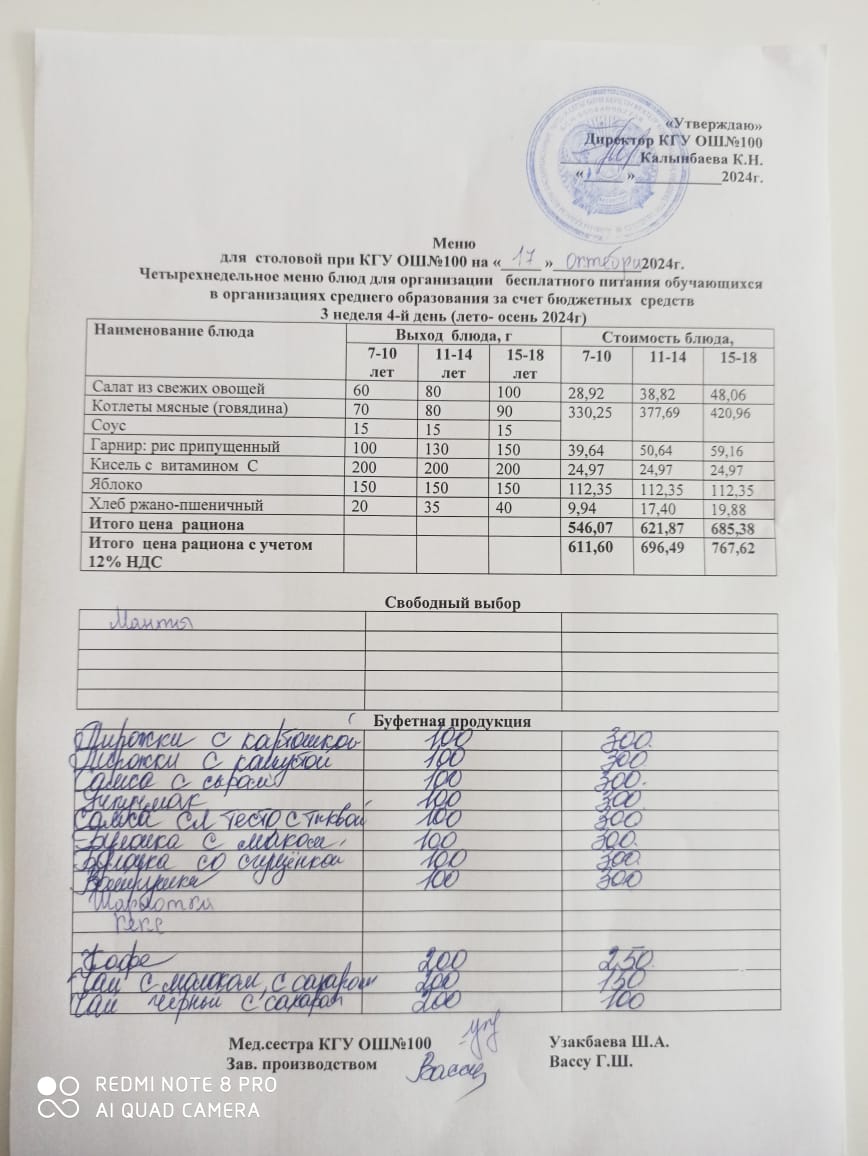 «Утверждаю»
Директор КГУ ОШ№100
__________Калынбаева К.Н.
«_____»___________2024г.
Меню
для столовой при КГУ ОШ№100 на «17» октября 2024г.
Четырехнедельное меню блюд для организации бесплатного питания обучающихся
в организациях среднего образования за счет бюджетных средств
3 неделя 4-й день (лето- осень 2024г)
Наименование блюда Выход блюда, г Стоимость блюда,
7-10 лет 11-14 лет 15-18 лет 7-10 11-14 15-18
Салат из свежих овощей 60 80 100 28,92 38,82 48,06
Котлеты мясные (говядина) 70 80 90 330,25 377,69 420,96
Соус 15 15 15
Гарнир: рис припущенный 100 130 150 39,64 50,64 59,16
Кисель с витамином С 200 200 200 24,97 24,97 24,97
Яблоко 150 150 150 112,35 112,35 112,35
Хлеб ржано-пшеничный 20 35 40 9,94 17,40 19,88
Итого цена рациона 546,07 621,87 685,38
Итого цена рациона с учетом 611,60 696,49 767,62
12% НДС
Свободный выбор
Буфетная продукция
Пирожки с картошкой 100 300
Пирожки с капустой 100 300
Самса с сыром 100 300
100 300
Самса сл тесто с тыквой 100 300
Булочка с маком 100 300
Булочка со сгущёнкой 100 300
100 300
Шарлотка
Кекс
Кофе 200 250
Чай с молоком, с сахаром 200 150
Чай чёрный с сахаром 200 100
Мед.сестра КГУ ОШ№100 Узакбаева Ш.А.
Зав. производством Вассу Вассу Г.Ш.
REDMI NOTE 8 PRO
AI QUAD CAMERA